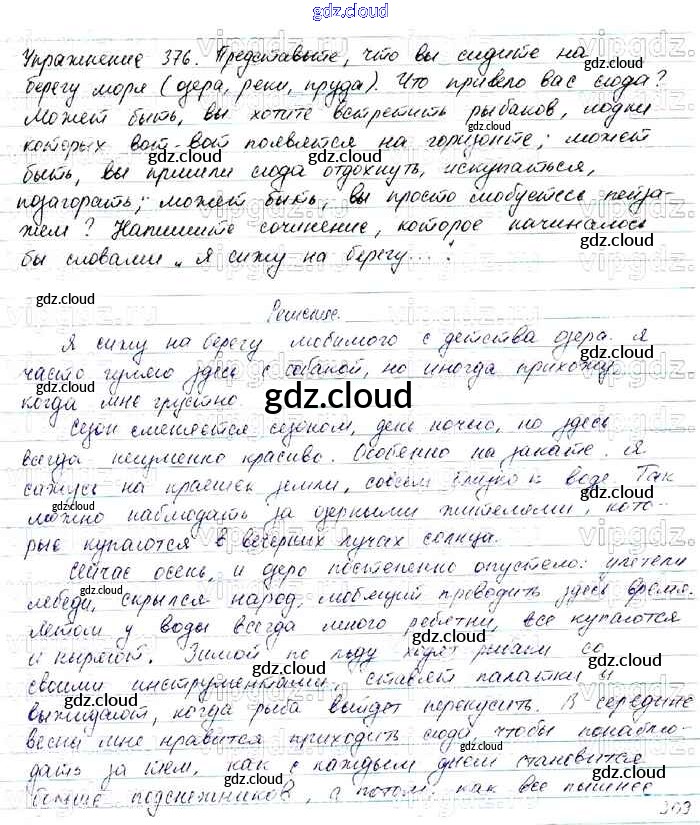 gdz.cloud
Упражнение 376. Представьте, что вы сидите на
берегу моря (озера, реки, пруда). Что привело вас сюда?
Может быть, вы хотите встретить рыбаков, лодки
которых вот-вот появятся на горизонте; может
быть, вы пришли сюда отдохнуть, искупаться,
позагорать; может быть, вы просто любуетесь пейза-
жем? Напишите сочинение, которое начиналось
бы словами „Я сижу на берегу...".
Решение.
Я сижу на берегу любимого с детства озера. Я
часто гуляю здесь с собакой, но иногда прихожу,
когда мне грустно.
gdz.cloud
Сезон сменяется сезоном, день ночью, но здесь
всегда неизменно красиво. Особенно на закате. Я
сажусь на краешек земли, совсем близко к воде. Так
можно наблюдать за озерными жителями, кото-
рые купаются в вечерних лучах солнца.
Сейчас осень, и озеро постепенно опустело: улетели
лебеди, скрылся народ, любящий проводить здесь время.
Летом у воды всегда много ребятни, все купаются
и ныряют. Зимой по льду ходят рыбаки со
своими инструментами, ставят палатки и
выжидают, когда рыба выйдет перекусить. В середине
весны мне нравится приходить сюда, чтобы понаблю-
дать за тем, как с каждым днем становится
больше подснежников, а потом как все пышнее
303